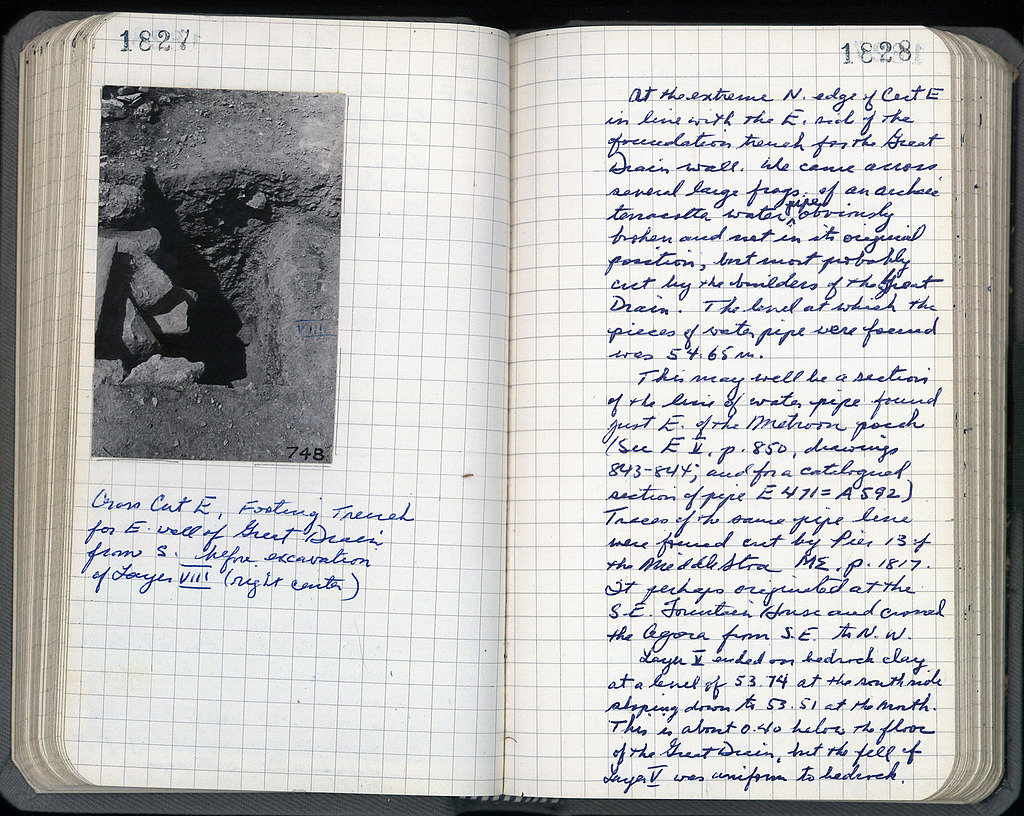 1827
VIII
748
Cross Cut E, Footing Trench
for E. wall of Great Drain
from S. before excavation
of Layer VIII (right center)
1828
At the extreme N. edge of Cut E
in line with the E. side of the
foundation trench for the Great
Drain wall. We came across
several large frags. of an archaic
terracotta water pipe obviously
broken and not in its original
position, but most probably
cut by the builders of the Great
Drain. The level at which the
pieces of water pipe were found
was 54.65 m.
This may well be a section
of the line of water pipe found
just E. of the Metroon porch
(See E V, p. 850, drawings
843-844; and for a catalogued
section of pipe E 471 = A 592)
Traces of the same pipe line
were found cut by Pier 13 of
the Middle Stoa ME, p. 1817.
It perhaps originated at the
S.E. Fountain House and crossed
the Agora from S.E. to N.W.
Layer V ended on bedrock clay
at a level of 53.74 at the south side
sloping down to 53.51 at the north.
This is about 0.40 below the floor
of the Great Drain, but the fill of
Layer V was uniform to bedrock.